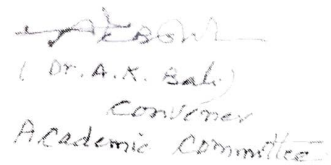 (Dr. A. K. Bali)
Convener
Academic Committee